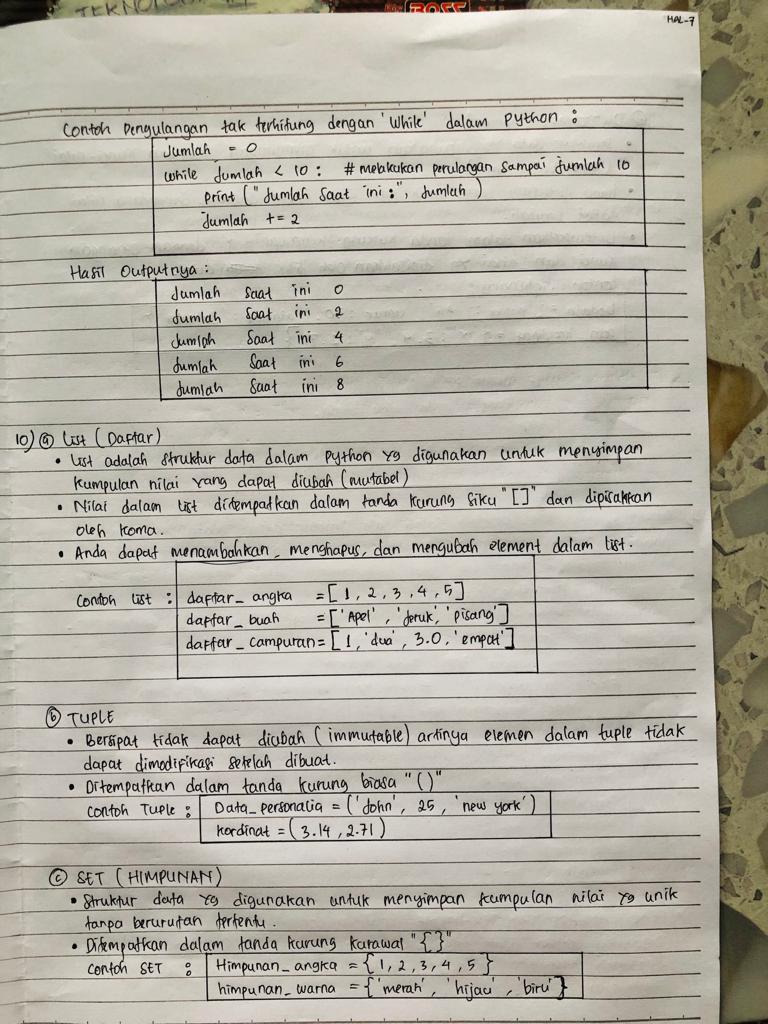 TEKNOLOGI
BOSS
HAL-7
Contoh Pengulangan tak terhitung dengan 'while' dalam Python :
Jumlah = 0
while Jumlah < 10 : # melakukan perulangan sampai Jumlah 10
print ("Jumlah Saat ini :", Jumlah )
Jumlah += 2
Hasil Outputnya :
Jumlah Saat ini 0
Jumlah Saat ini 2
Jumlah Saat ini 4
Jumlah Saat ini 6
Jumlah Saat ini 8
10) a List ( Daftar )
• List adalah Struktur data dalam Python yg digunakan untuk menyimpan
kumpulan nilai yang dapat diubah (mutabel)
• Nilai dalam List ditempatkan dalam tanda kurung siku "[]" dan dipisahkan
oleh koma.
• Anda dapat menambahkan, menghapus, dan mengubah element dalam list.
Contoh list : daftar_angka = [ 1, 2, 3, 4, 5 ]
daftar_buah = ['Apel', 'Jeruk', 'pisang']
daftar_campuran = [ 1, 'dua', 3.0, 'empat']
b TUPLE
• Bersipat tidak dapat diubah ( immutable) artinya elemen dalam tuple tidak
dapat dimodifikasi setelah dibuat.
• Ditempatkan dalam tanda kurung biasa "()"
Contoh Tuple : Data_personalia = ('John', 25, 'new york')
kordinat = (3.14, 2.71)
c SET ( HIMPUNAN )
• Struktur data yg digunakan untuk menyimpan kumpulan nilai yg unik
tanpa berurutan tertentu.
• Ditempatkan dalam tanda kurung kurawal "{}"
Contoh SET : Himpunan_angka = { 1, 2, 3, 4, 5 }
himpunan_warna = {'merah', 'hijau', 'biru'}